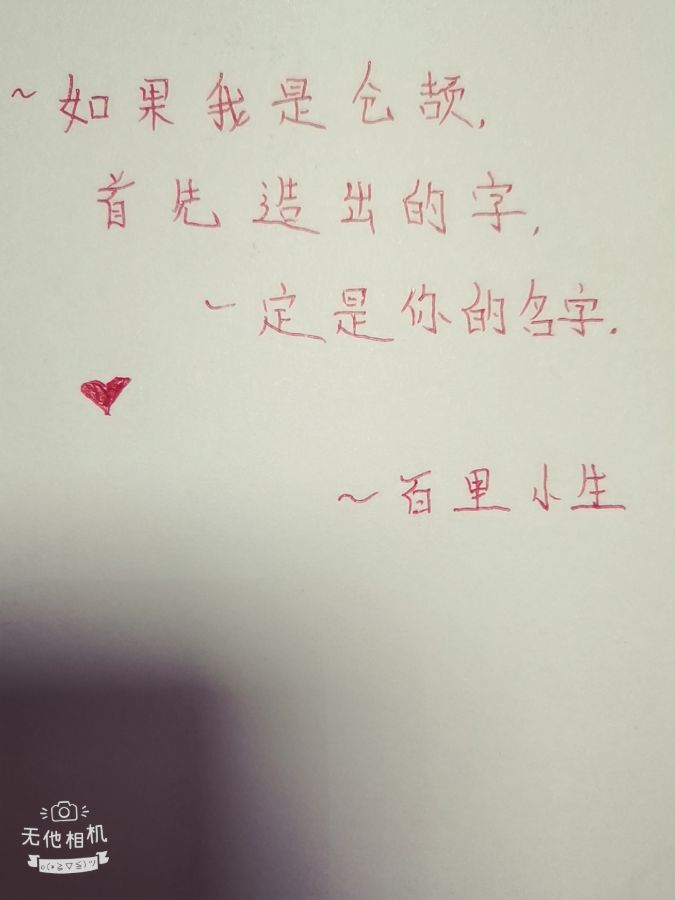 ~如果我是仓颉,
首先造出的字,
一定是你的名字.
~百里小生
无他相机
o(*≧▽≦)ツ